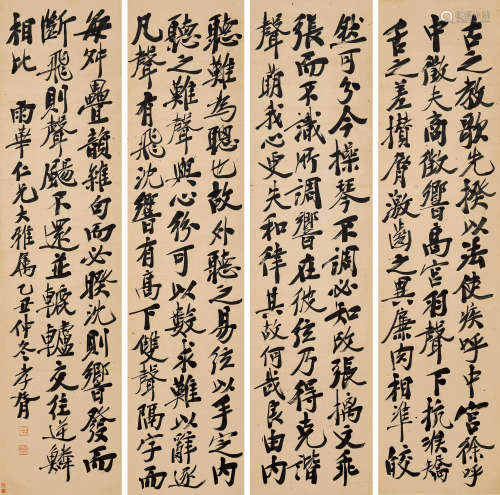 古之教歌先揆以法使疾呼中宮徐呼
中徵夫商徵響高宮羽聲下抗喉矯
舌之差攢脣激齒之異廉肉相準皎
然可分今操琴不調必知改張摛文乖
張而不識所調響在彼絃乃得克諧
聲萌我心更失和律其故何哉良由內
聽難為聰也故外聽之易絃以手定內
聽之難聲與心紛可以數求難以辭逐
凡聲有飛沈響有高下雙聲隔字而
每舛疊韻雜句而必睽沈則響發而
斷飛則聲颺不還並轆轤交往逆鱗
相比 雨華仁兄大雅屬乙丑仲冬孝胥